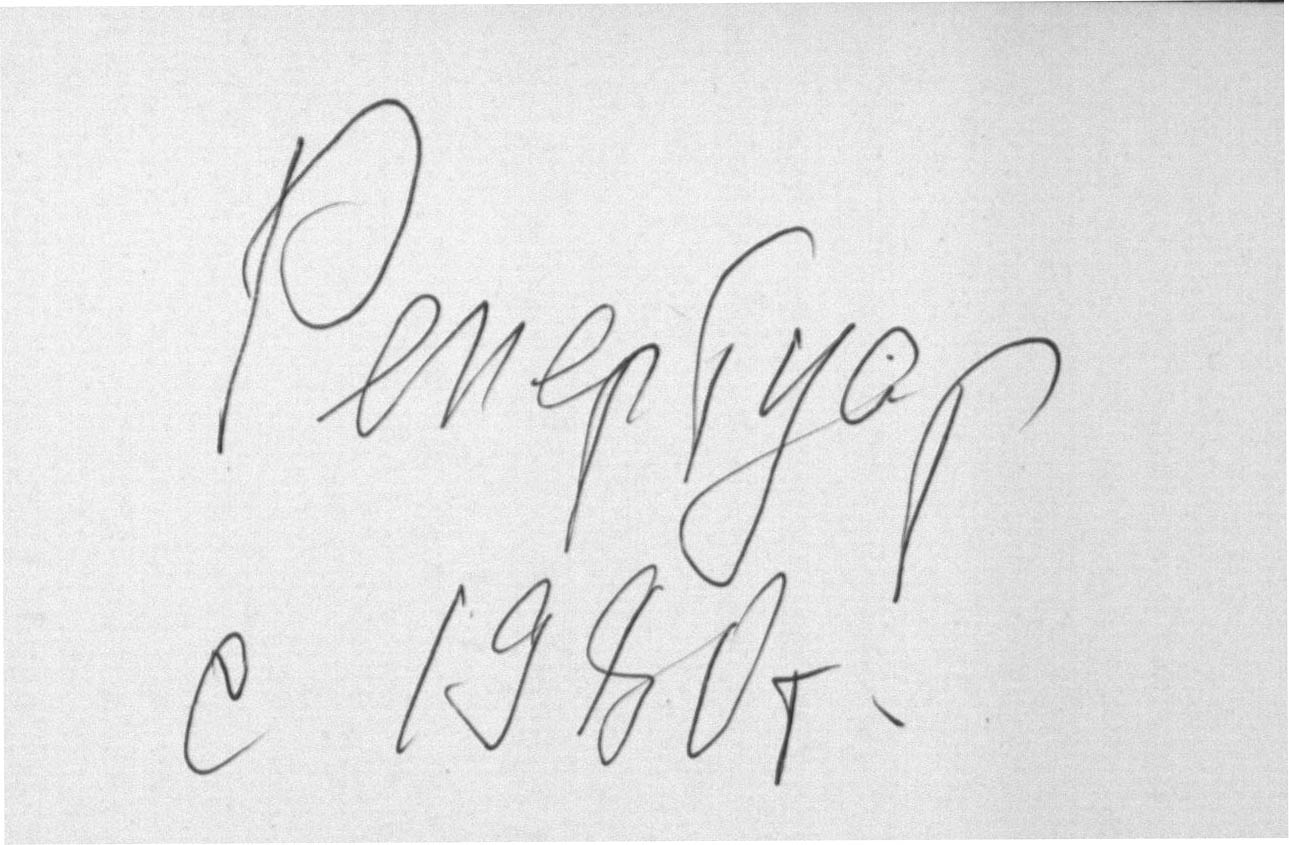 Репертуар
с 1980 г.